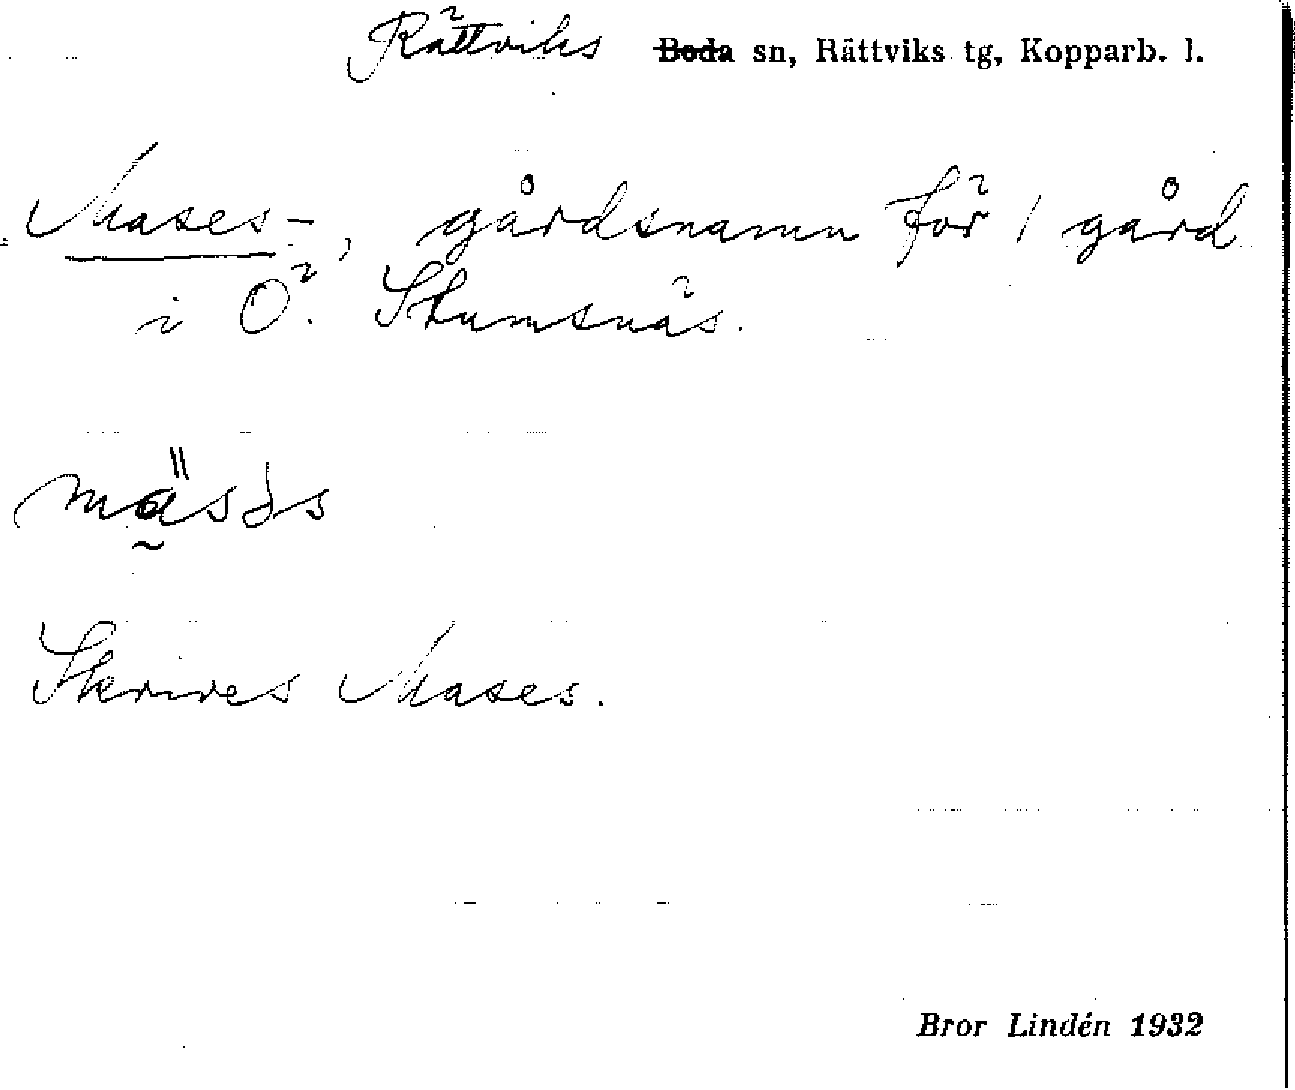 Rättviks Boda sn, Rättviks tg, Kopparb. l.
Mases-, gårdsnamn för 1 gård
i Ö. Stumsnäs.
Skrives Mases.
Bror Lindén 1932